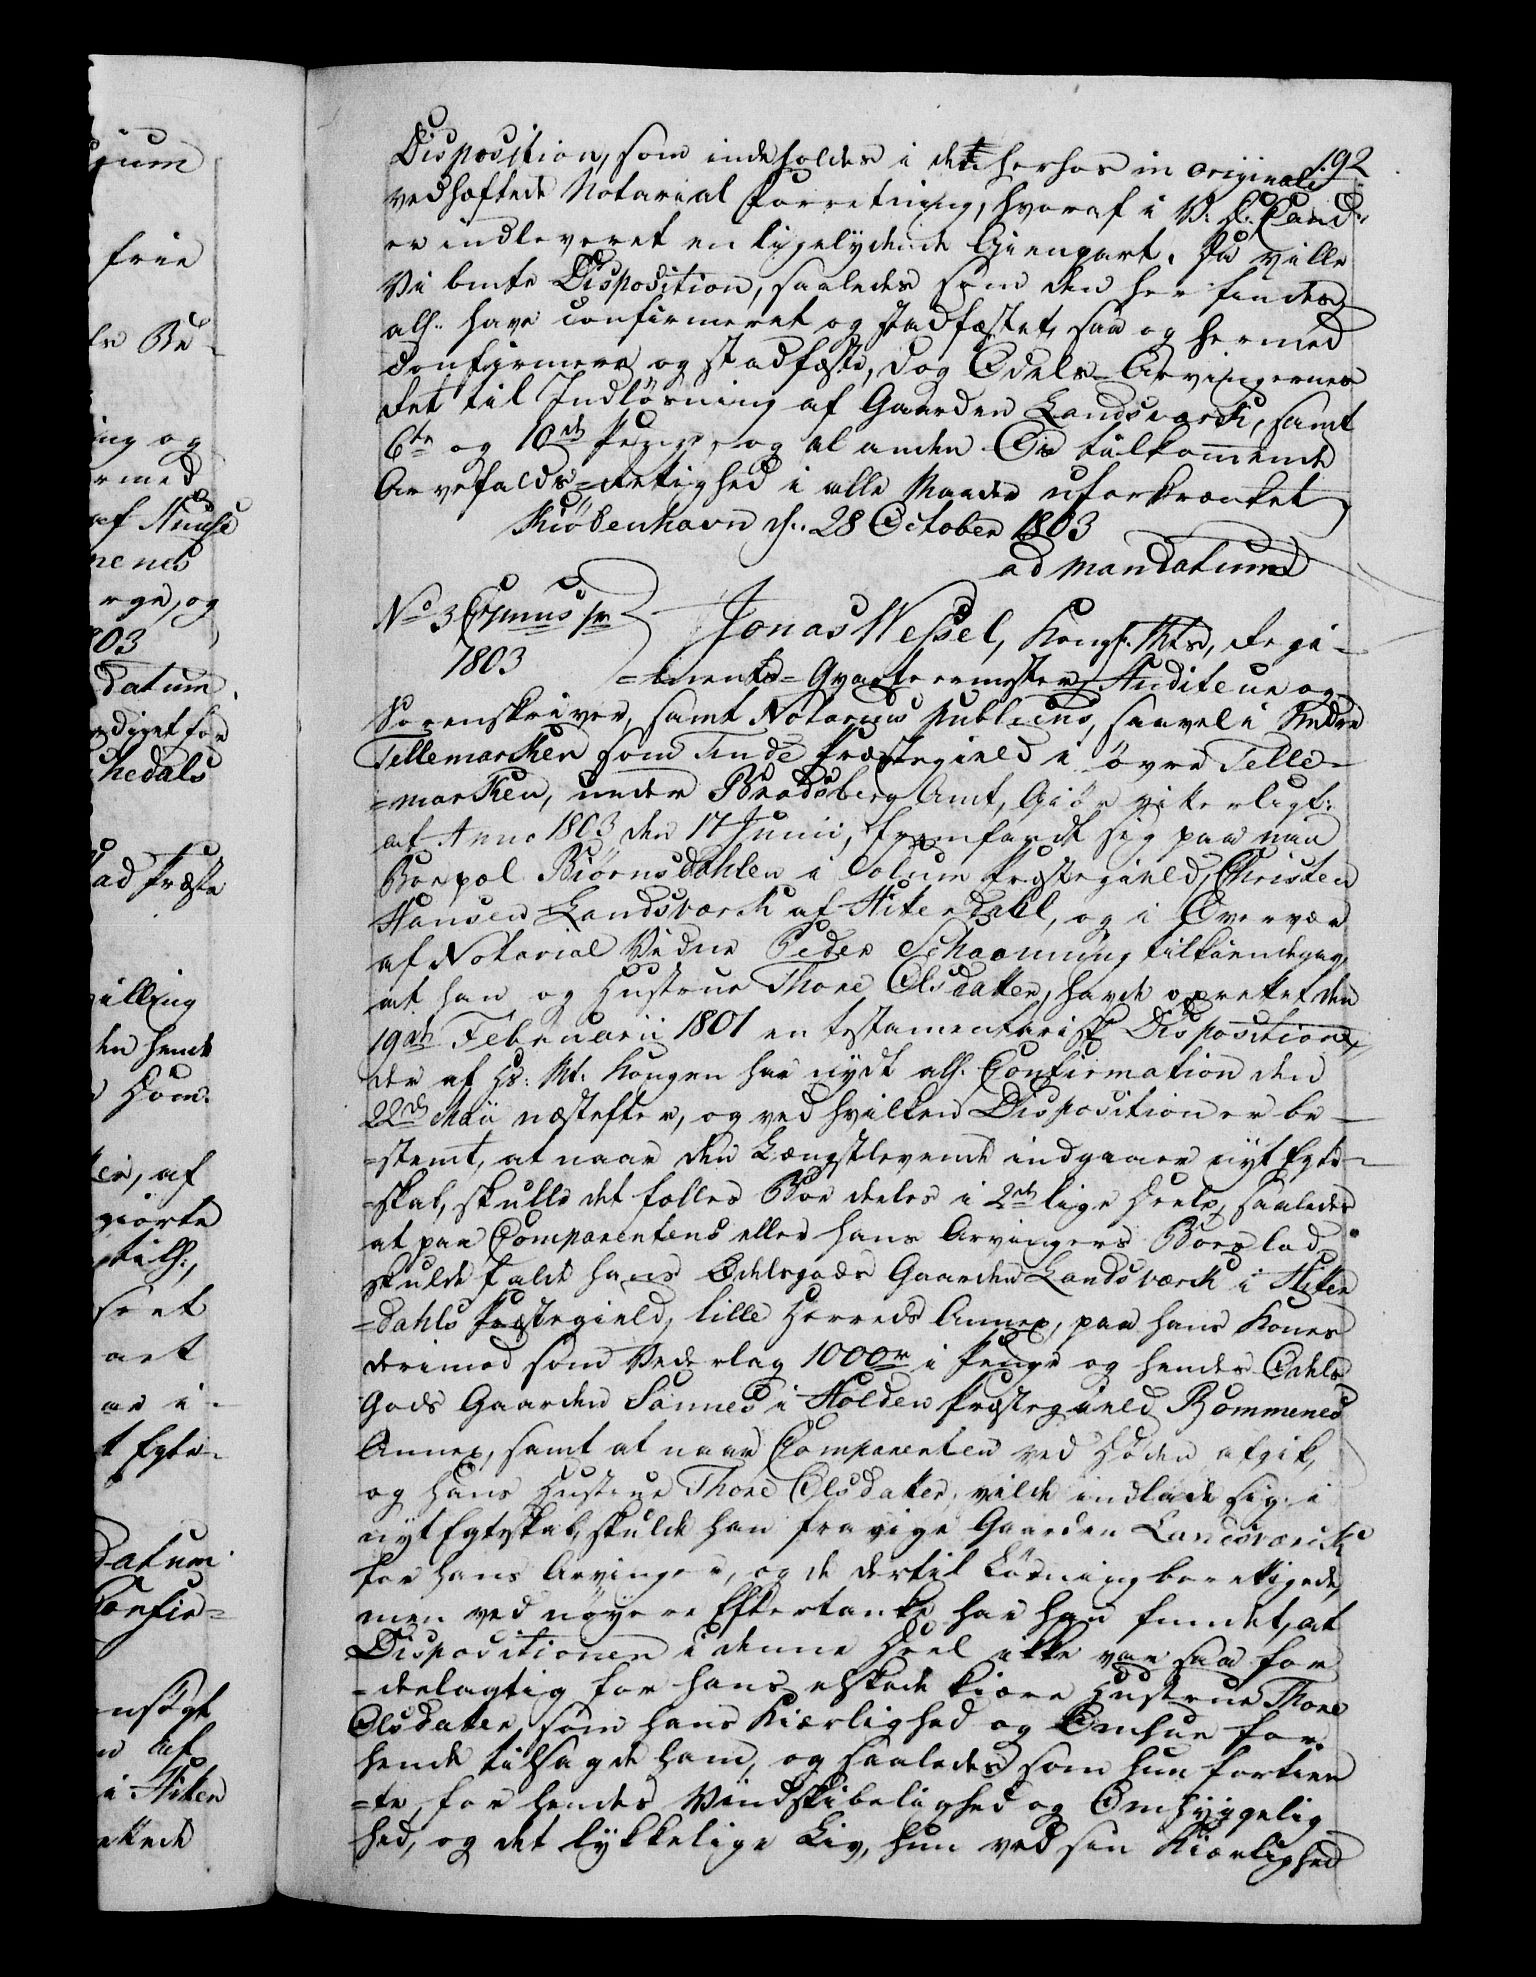 192
Disposition, som indeholdes i det herhos in originali
vedhæftede Notarial Forretning, hvoraf i V. D. Cancl.
er indleveret en ligelydende Gienpart. Da ville
Vi bmte Disposition, saaledes som den her findes
alh. have confirmeret og stadfæstet, saa og hermed
confirmere og stadfæste, dog Odels-Arvingernes
Ret til Indløsning af Gaarden Landsværk, samt
6te og 10de Penge, og al anden Os tilkommende
Arvefalds-Rettighed i alle Maader uforkrænket
Kiöbenhavn d. 28 October 1803
ad mandatum
No 3 Cismus pr
1803
Jonas Wessel, Kongl. Mts, Regi-
=ments-Qvarteermester, Auditeur og
Sorenskriver, samt Notarius publicus, saavel i Nedre
Tellemarken som Tinds Præstegield i øvre Telle-
=marken, under Bradsberg Amt, Giör vitterligt:
at Anno 1803 den 17 Junii, fremfandt sig paa min
Boepæl Biörnsdahlen i Solum Præstegield, Christen
Hansen Landsværk af Hiterdahl, og i Overvær
af Notarial Vidne Peder Schaanning tilkiendegav,
at han og Hustrue Thone Olsdatter, havde oprettet den
19de Februarii 1801 en testamentarisk Disposition,
der af Hs. Mt. Kongen har nydt alh. Confirmation den
22de Maii næstefter, og ved hvilken Disposition er be-
=stemt, at naar den Længstlevende indgaaer nyt Egte-
=skab, skulle det fælles Boe deeles i 2de lige Deele, saaledes
at paa Comparentens eller hans Arvingers Boeslod
skulde falde hans Odelsgods Gaarden Landsværk i Hiter
=dahls Præstegield, lille Herreds Annex, paa hans Kones
derimod som Vederlag 1000 r i Penge og hendes Odels
Gods Gaarden Sannes i Holden Præstegield Rommenes
Annex, samt at naar Comparenten ved Døden afgik,
og hans Hustrue Thone Olsdatter, vilde indlade sig i
nyt Egteskab, skulde hun fravige Gaarden Landsværk
for hans Arvinger, og de dertil Lösningberettigede,
men ved nøyere Eftertanke har han fundet, at
Dispositionen i denne Deel ikke var saa for
=deelagtig for hans elskede kiære Hustrue Thone
Olsdatter, som hans Kiærlighed og Omhue for
hende tilsagde ham, og saaledes som hun fortien
=te, for hendes Vindskibelighed og Omhyggelig-
hed, og det lykkelige Liv, hun ved sin Kiærlighed